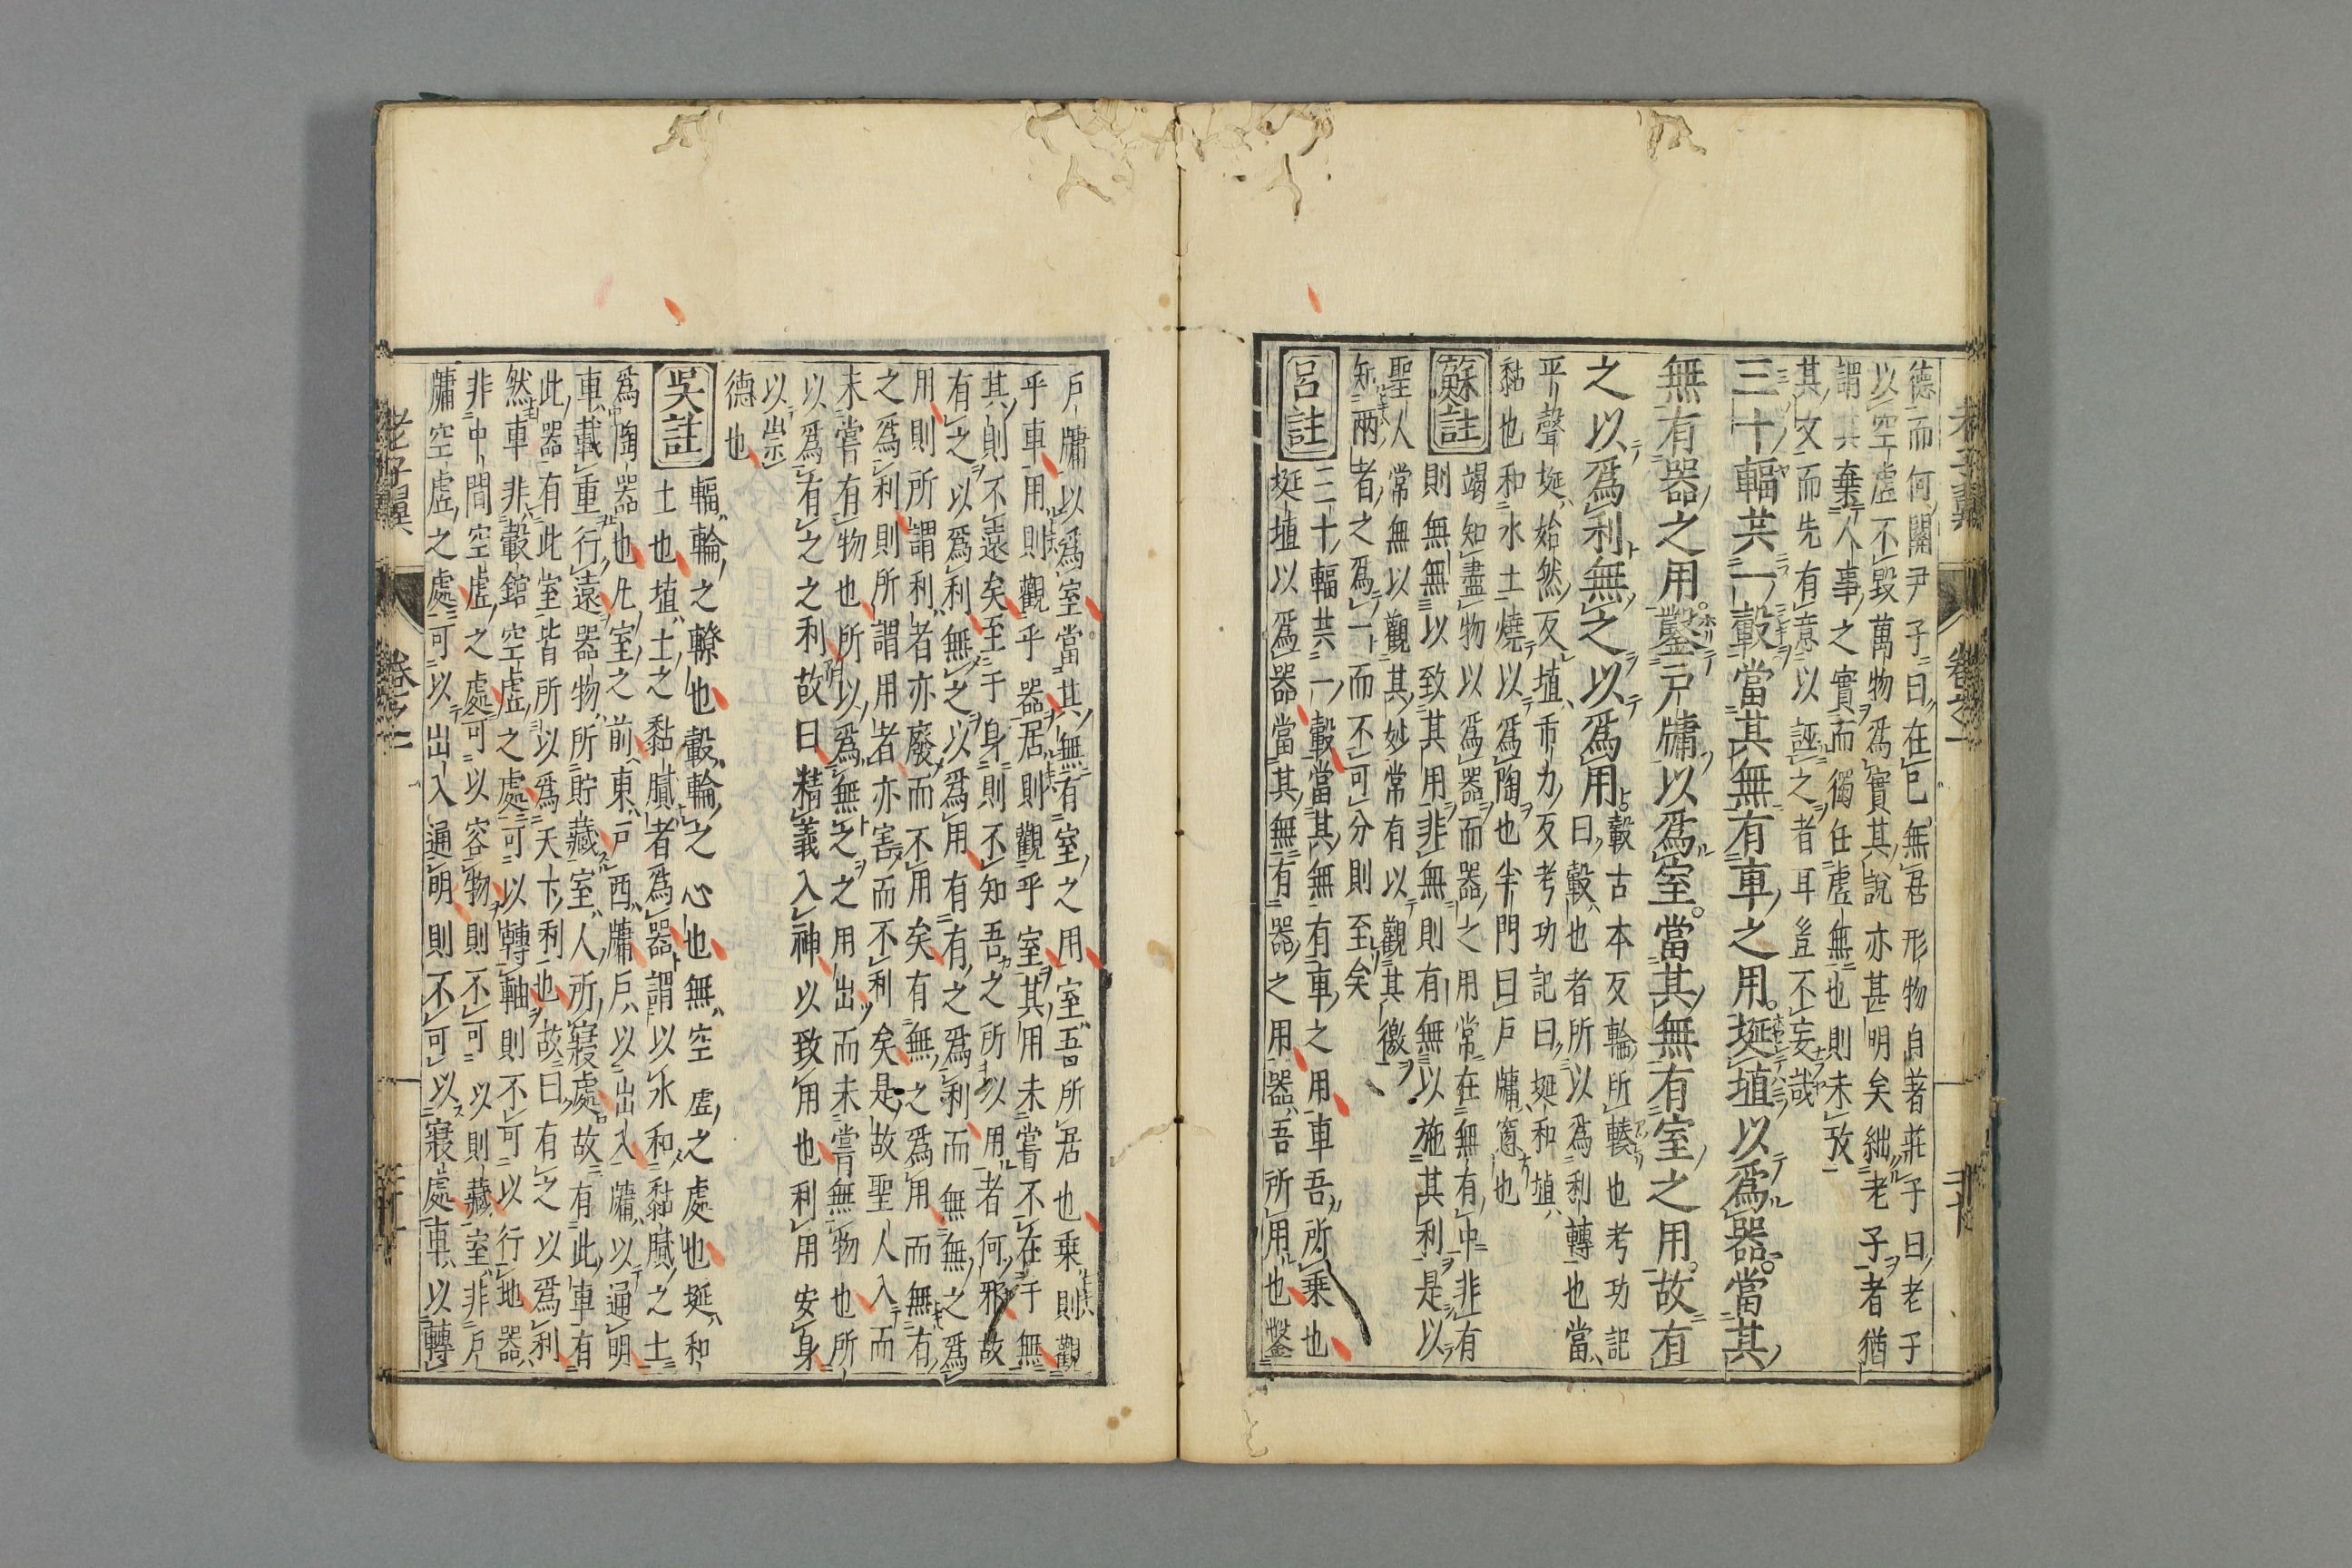 老子翼 卷之一 二十
德而何關尹子曰在已無居形物自著莊子曰老子
以空虛不毀萬物爲實其說亦甚明矣絀老子者猶
謂其棄人事之實而獨任虛無也則未攷
其文而先有意以誣之者耳豈不妄哉
三十輻共一轂當其無有車之用。埏埴以爲器。當其
無有器之用。鑿戶牖以爲室。當其無有室之用。故有
之以爲利無之以爲用。
轂古本反輪所轃也考功記
曰轂也者所以爲利轉也當
平聲埏始然反埴市力反考功記曰埏和埴
黏也和水土燒以爲陶也半門曰戶牖窓也
蘇註
竭知盡物以爲器而器之用常在無有中非有
則無無以致其用非無則有無以施其利是以
聖人常無以觀其妙常有以觀其徼
知兩者之爲一而不可分則至矣
呂註
三十輻共一轂當其無有車之用車吾所乘也
埏埴以爲器當其無有器之用器吾所用也鑿
戶牖以爲室當其無有室之用室吾所居也乘則觀
乎車用則觀乎器居則觀乎室其用未嘗不在于無
其則不遠矣至于身則不知吾之所以用者何邪故
有之以爲利無之以爲用有有之爲利而無無之爲
用則所謂利者亦廢而不用矣有無之爲用而無有
之爲利則所謂用者亦害而不利矣是故聖人入而
未嘗有物也所以爲無之之用出而未嘗無物也所
以爲有之之利故曰精義入神以致用也利用安身
以崇
德也
吳註
輻輪之轑也轂輪之心也無空虛之處也埏和
土也埴土之黏膩者爲器謂以水和黏膩之土
爲陶器也凡室之前東戶西牖戶以出入牖以通明
車載重行遠器物所貯藏室人所寢處故有此車有
此器有此室皆所以爲天下利也故曰有之以爲利
然車非轂錧空虛之處可以轉軸則不可以行地器
非中間空虛之處可以容物則不可以則藏室非戶
牖空虛之處可以出入通明則不可以寢處車以轉
老子翼 卷之一